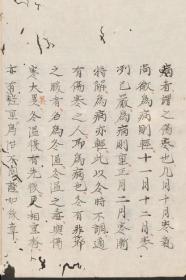 病者謂之傷寒也九月十月寒氣
尚微為病則輕十一月十二月寒
冽已嚴為病則重正月二月寒漸
將解為病亦輕此以冬時不調適
有傷寒之人即為病也冬有非節
之暖者名為冬温冬温之毒與傷
寒大異冬温復有先後更相重沓
亦有輕重為治不同證如後章